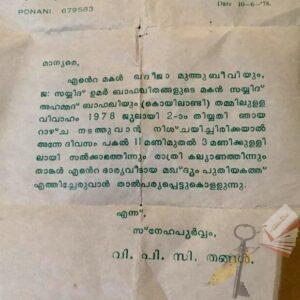 PONANI. 679583
Date 10-6-'78.
മാന്യരെ,
എന്റെ മകൾ ഖദീജാ മുത്തുബീവിയും,
ജ: സയ്യിദ് ഉമർ ബാഫഖിതങ്ങളുടെ മകൻ സയ്യിദ്
അഹമ്മദ് ബാഫഖിയും (കൊയിലാണ്ടി) തമ്മിലുളള
വിവാഹം 1978 ജൂലായി 2-ാം തിയ്യതി ഞായ
റാഴ്ച നടത്തുവാൻ നിശ്ചയിച്ചിരിക്കയാൽ
അന്നേ ദിവസം പകൽ 11 മണിമുതൽ 3 മണിക്കുളളി
ലായി സൽക്കാരത്തിന്നും രാത്രി കല്യാണത്തിന്നും
താങ്കൾ എൻെറ ഭാര്യവീടായ മഖ്ദൂം പുതിയകത്ത്
എത്തിച്ചേരുവാൻ താൽപര്യപ്പെട്ടുകൊളളുന്നു.
എന്ന്,
സ്നേഹപൂർവ്വം,
വി. പി. സി. തങ്ങൾ.